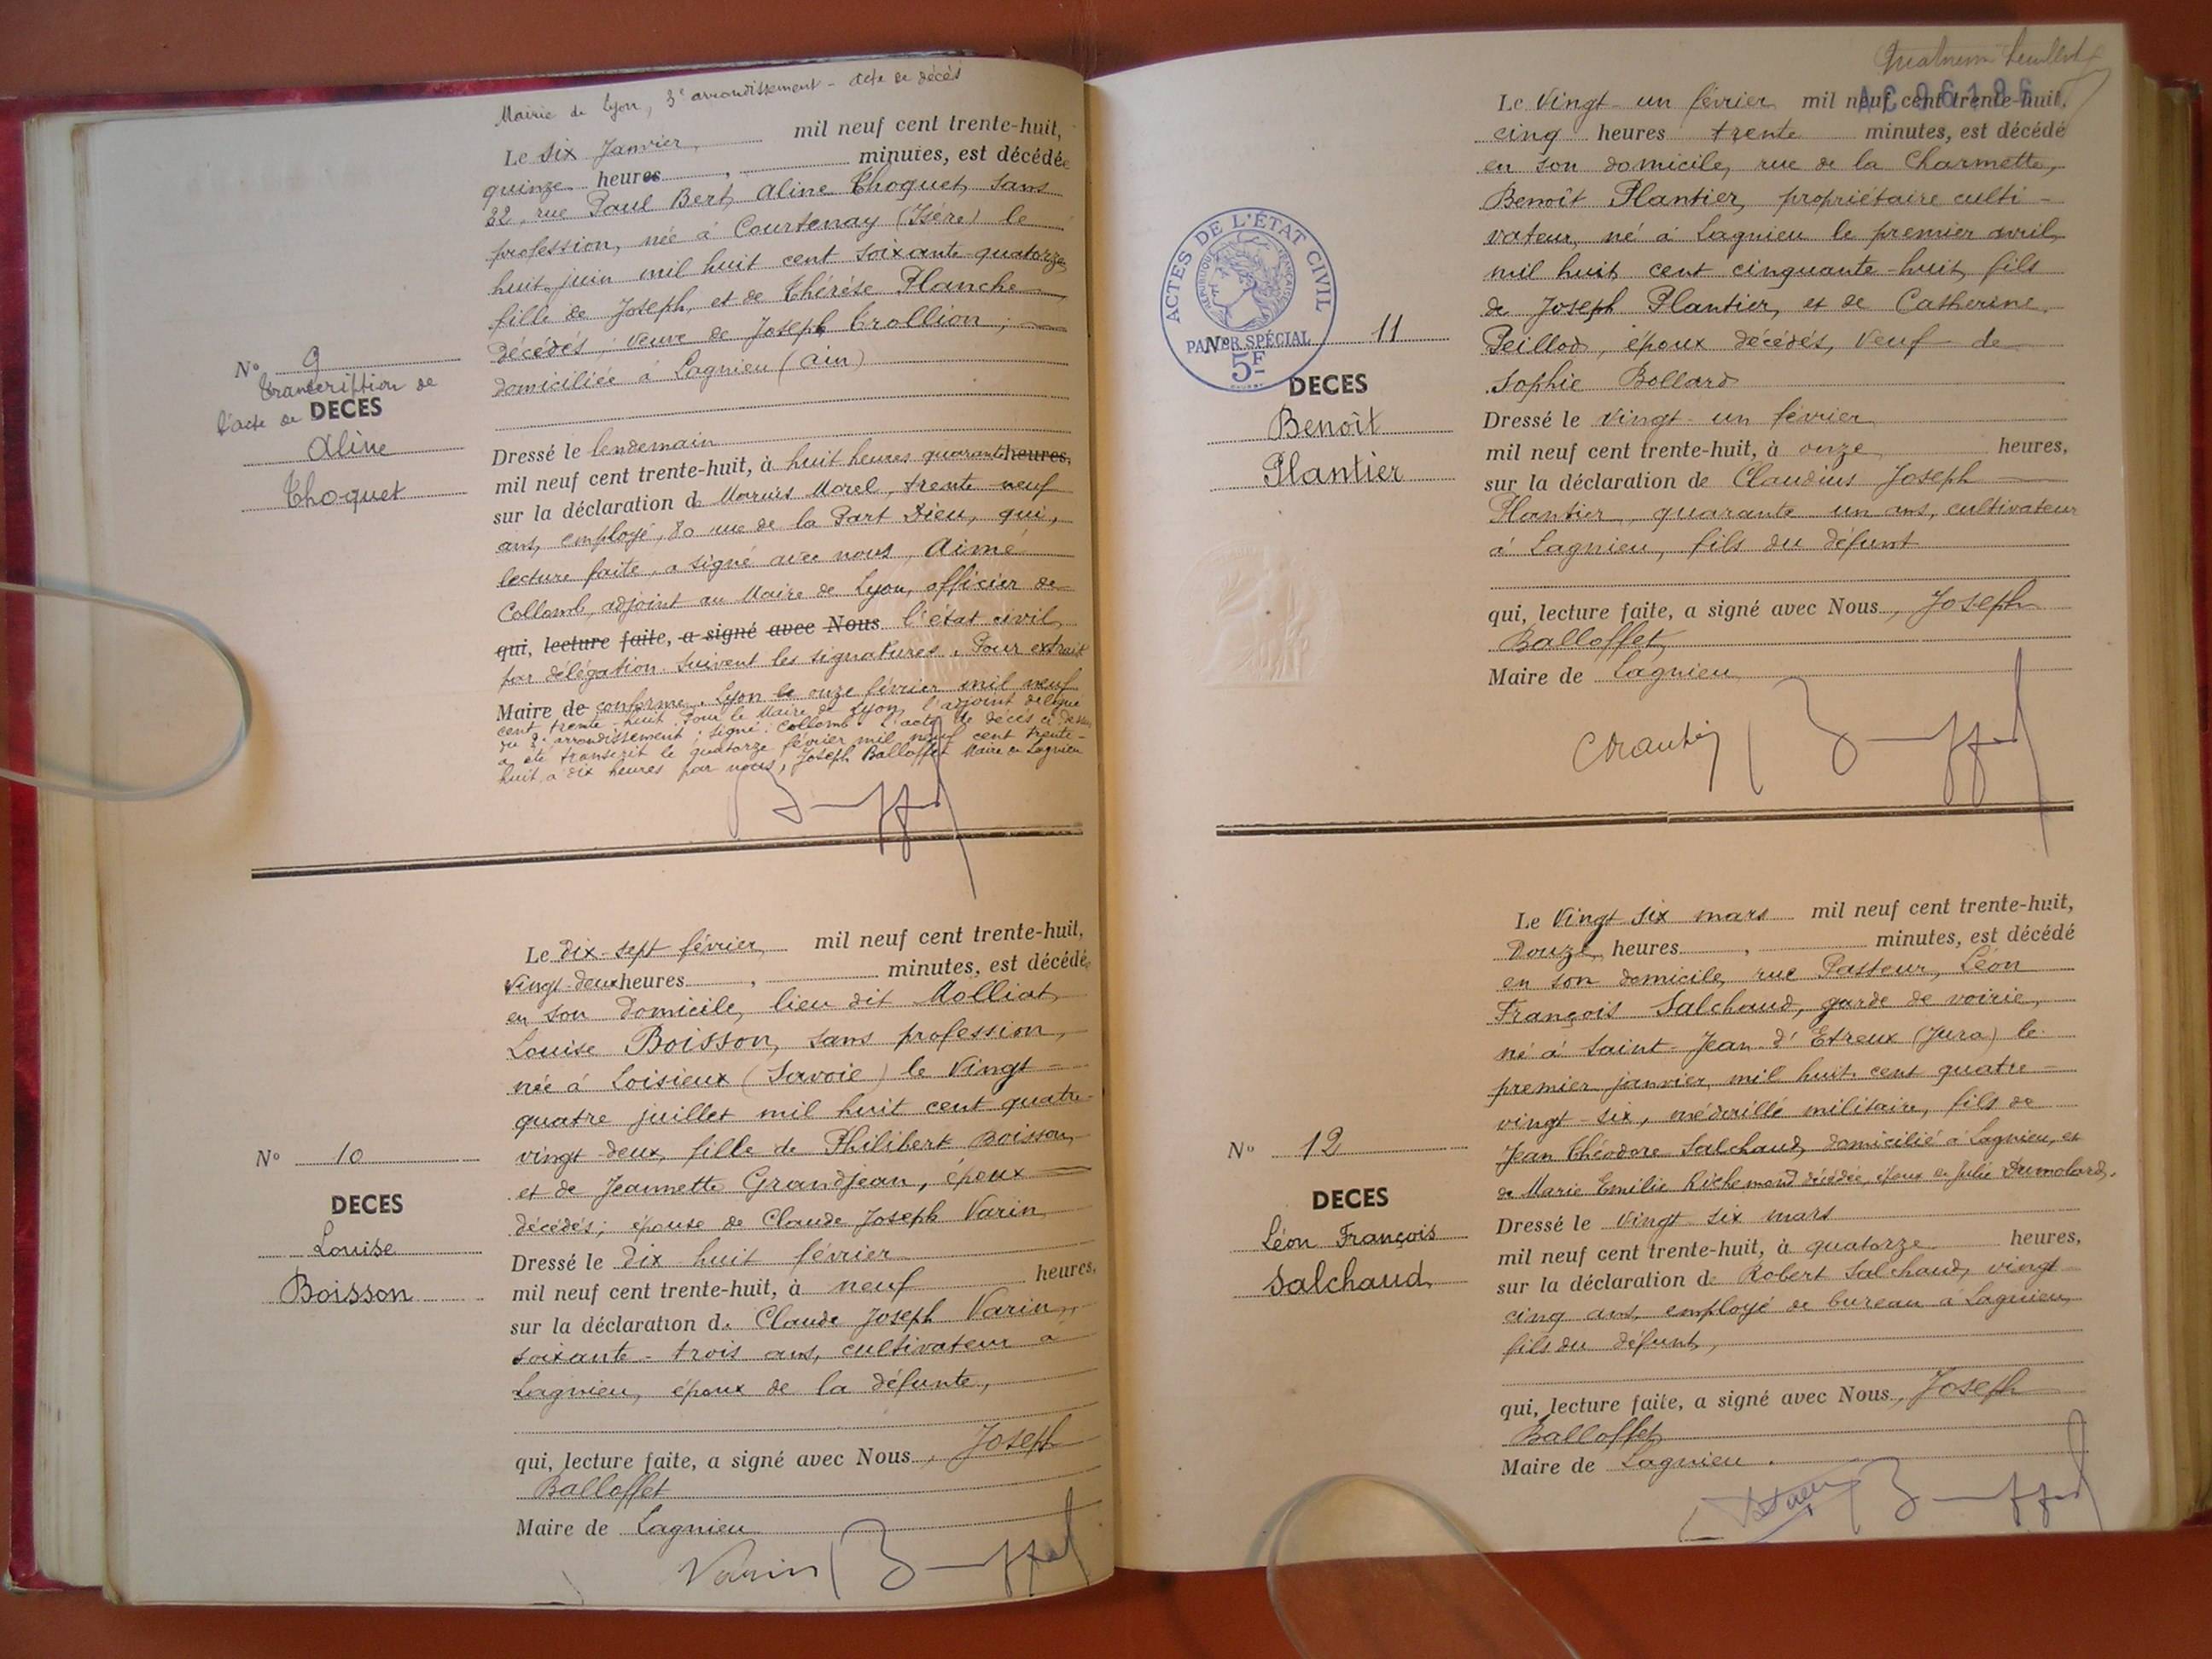 Mairie de Lyon, 3e arrondissement - acte de décès
Le six Janvier, mil neuf cent trente-huit,
quinze heures , minutes, est décédée
rue Paul Bert, Aline Thoquet, sans
profession, née à Courtenay (Isère) le
huit juin mil huit cent soixante-quatorze
fille de Joseph, et de Thérèse Planche
décédés; veuve de Joseph Crollion;
domiciliée à Lagnieu (ain)
N° 9
Transcription de
l'acte de DECES
Aline
Thoquet
Dressé le lendemain
mil neuf cent trente-huit, à huit heures quarante heures,
sur la déclaration d Marius Morel, trente-neuf
ans, employé, 80 rue de la Part Dieu, qui,
lecture faite, a signé avec nous, Aimé
Collomb, adjoint au Maire de Lyon, officier de
qui, lecture faite, a signé avec Nous l'état civil
par délégation. Suivent les signatures. Pour extrait
Maire de conforme. Lyon le onze février mil neuf
cent trente-huit. Pour le Maire de Lyon, l'adjoint délégué
du 3e arrondissement, signé: Collomb. L'acte de décès ci-dessus
a été transcrit le quatorze février mil neuf cent trente-
huit, à dix heures par nous, Joseph Balloffet Maire de Lagnieu
Le dix-sept février, mil neuf cent trente-huit,
vingt-deux heures , minutes, est décédée
en son domicile, lieu dit Molliat,
Louise Boisson, sans profession,
née à Loisieux (Savoie) le vingt-
quatre juillet mil huit cent quatre-
vingt-deux, fille de Philibert Boisson,
et de Jeannette Grandjean, époux
décédés; épouse de Claude Joseph Varin
N° 10
DECES
Louise
Boisson
Dressé le dix-huit février
mil neuf cent trente-huit, à neuf heures,
sur la déclaration de Claude Joseph Varin,
soixante-trois ans, cultivateur à
Lagnieu, époux de la défunte,
qui, lecture faite, a signé avec Nous, Joseph
Balloffet
Maire de Lagnieu
Varin
Le Vingt-un février mil neuf cent trente-huit,
cinq heures trente minutes, est décédé
en son domicile, rue de la Charmette,
Benoît Plantier, propriétaire culti-
vateur, né à Lagnieu le premier avril
mil huit cent cinquante-huit, fils
de Joseph Plantier, et de Catherine
Peillod, époux décédés, Veuf de
Sophie Bollard
ACTES DE L'ÉTAT CIVIL
RÉPUBLIQUE FRANÇAISE
PAPIER SPÉCIAL
5F
N° 11
DECES
Benoît
Plantier
Dressé le vingt-un février
mil neuf cent trente-huit, à onze heures,
sur la déclaration de Claudius Joseph
Plantier, quarante-un ans, cultivateur
à Lagnieu, fils du défunt
qui, lecture faite, a signé avec Nous, Joseph
Balloffet,
Maire de Lagnieu
Le Vingt-six mars mil neuf cent trente-huit,
Douze heures , minutes, est décédé
en son domicile, rue Pasteur, Léon
François Salchaud, garde de voirie,
né à Saint-Jean d'Etreux (Jura) le
premier janvier mil huit cent quatre-
vingt-six, médaillé militaire, fils de
Jean Théodore Salchaud, domicilié à Lagnieu, et
de Marie Emilie Richemond décédée, époux de Julie Dumolard.
N° 12
DECES
Léon François
Salchaud
Dressé le vingt-six mars
mil neuf cent trente-huit, à quatorze heures,
sur la déclaration de Robert Salchaud, vingt-
cinq ans, employé de bureau à Lagnieu,
fils du défunt,
qui, lecture faite, a signé avec Nous, Joseph
Balloffet
Maire de Lagnieu.